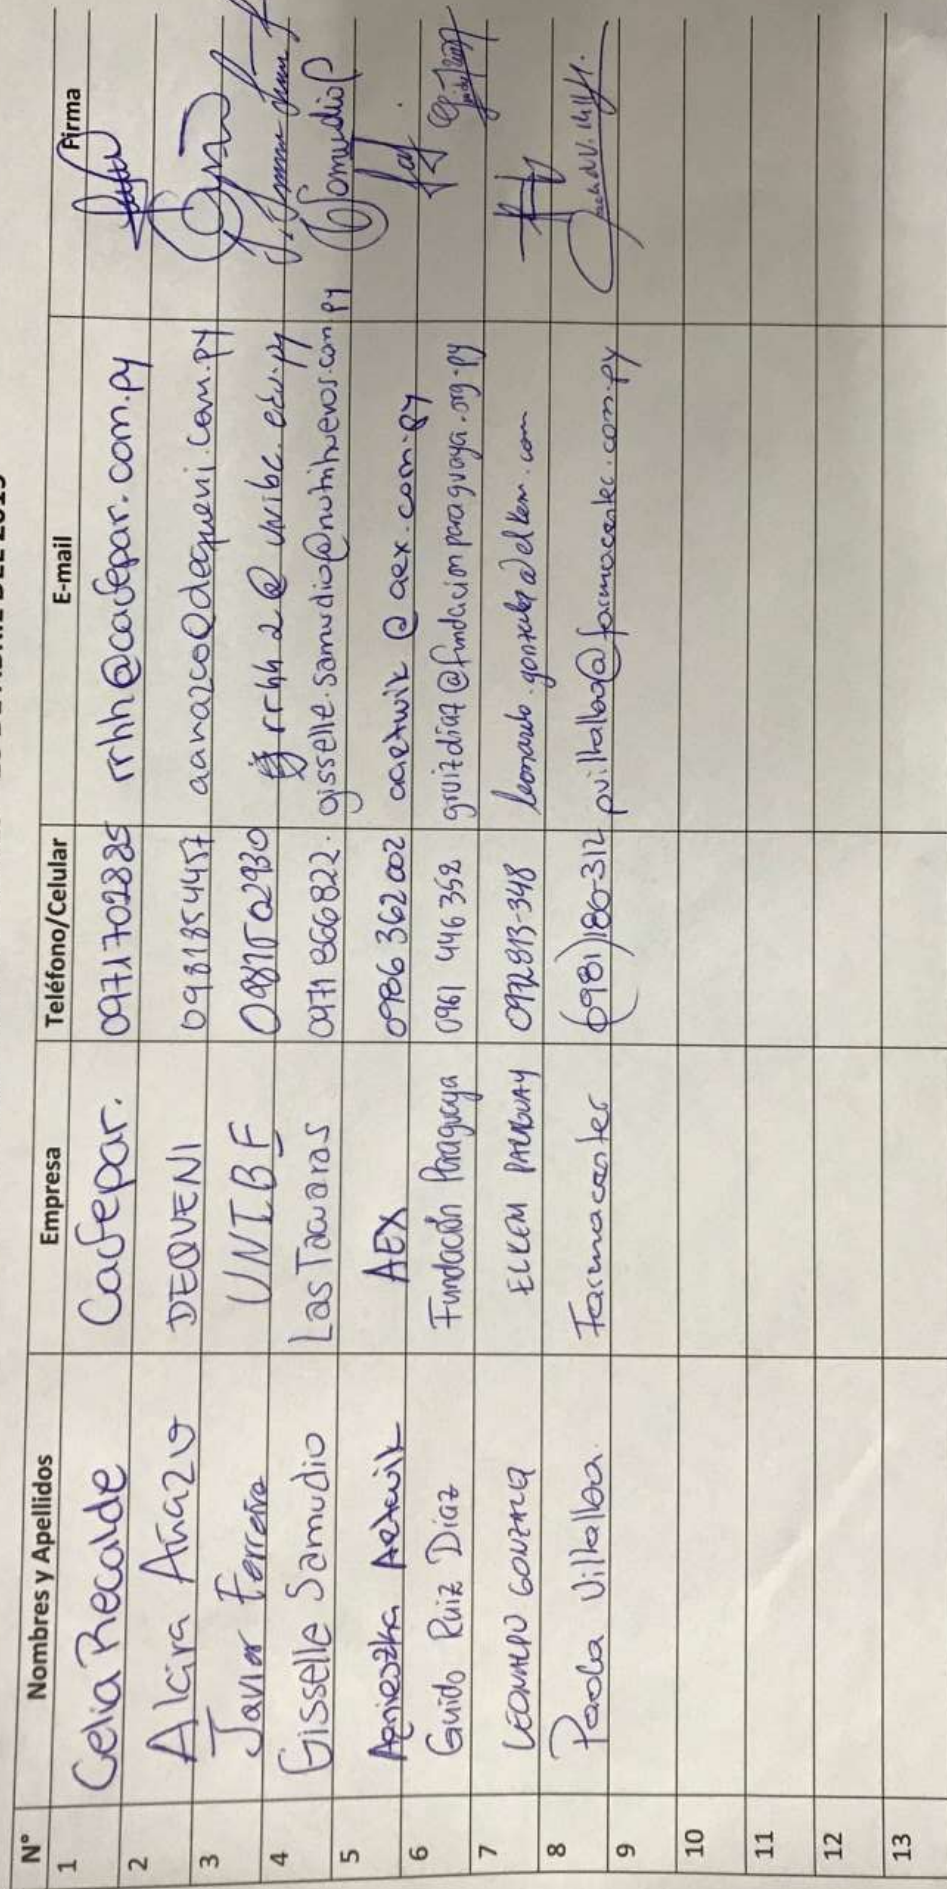 N° Nombres y Apellidos Empresa Teléfono/Celular E-mail Firma
1 Celia Recalde Cafepar. 0971702885 rrhh@cafepar.com.py
2 Alcira Añazco DEQUENI 0981854457 aanazco@dequeni.com.py
3 Javier Ferreira UNIBF rrhh2@unibe.edu.py
4 Gisselle Samudio Las Tacuaras 0971866822. gisselle.samudio@nutrihuevos.com.py GSamudioP
5 Agnieszka Axtwik AEX 0986 362 002 aaxtwik@aex.com.py
6 Guido Ruiz Diaz Fundación Paraguaya 0961 446 352 gruizdiaz@fundacionparaguaya.org.py
7 LEONARDO GONZALEZ ELKEM PARAGUAY 0972913-348 leonardo.gonzalez@elkem.com
8 Paola Villalba. Farmacenter (0981)186-312 pvillalba@farmacenter.com.py
9
10
11
12
13